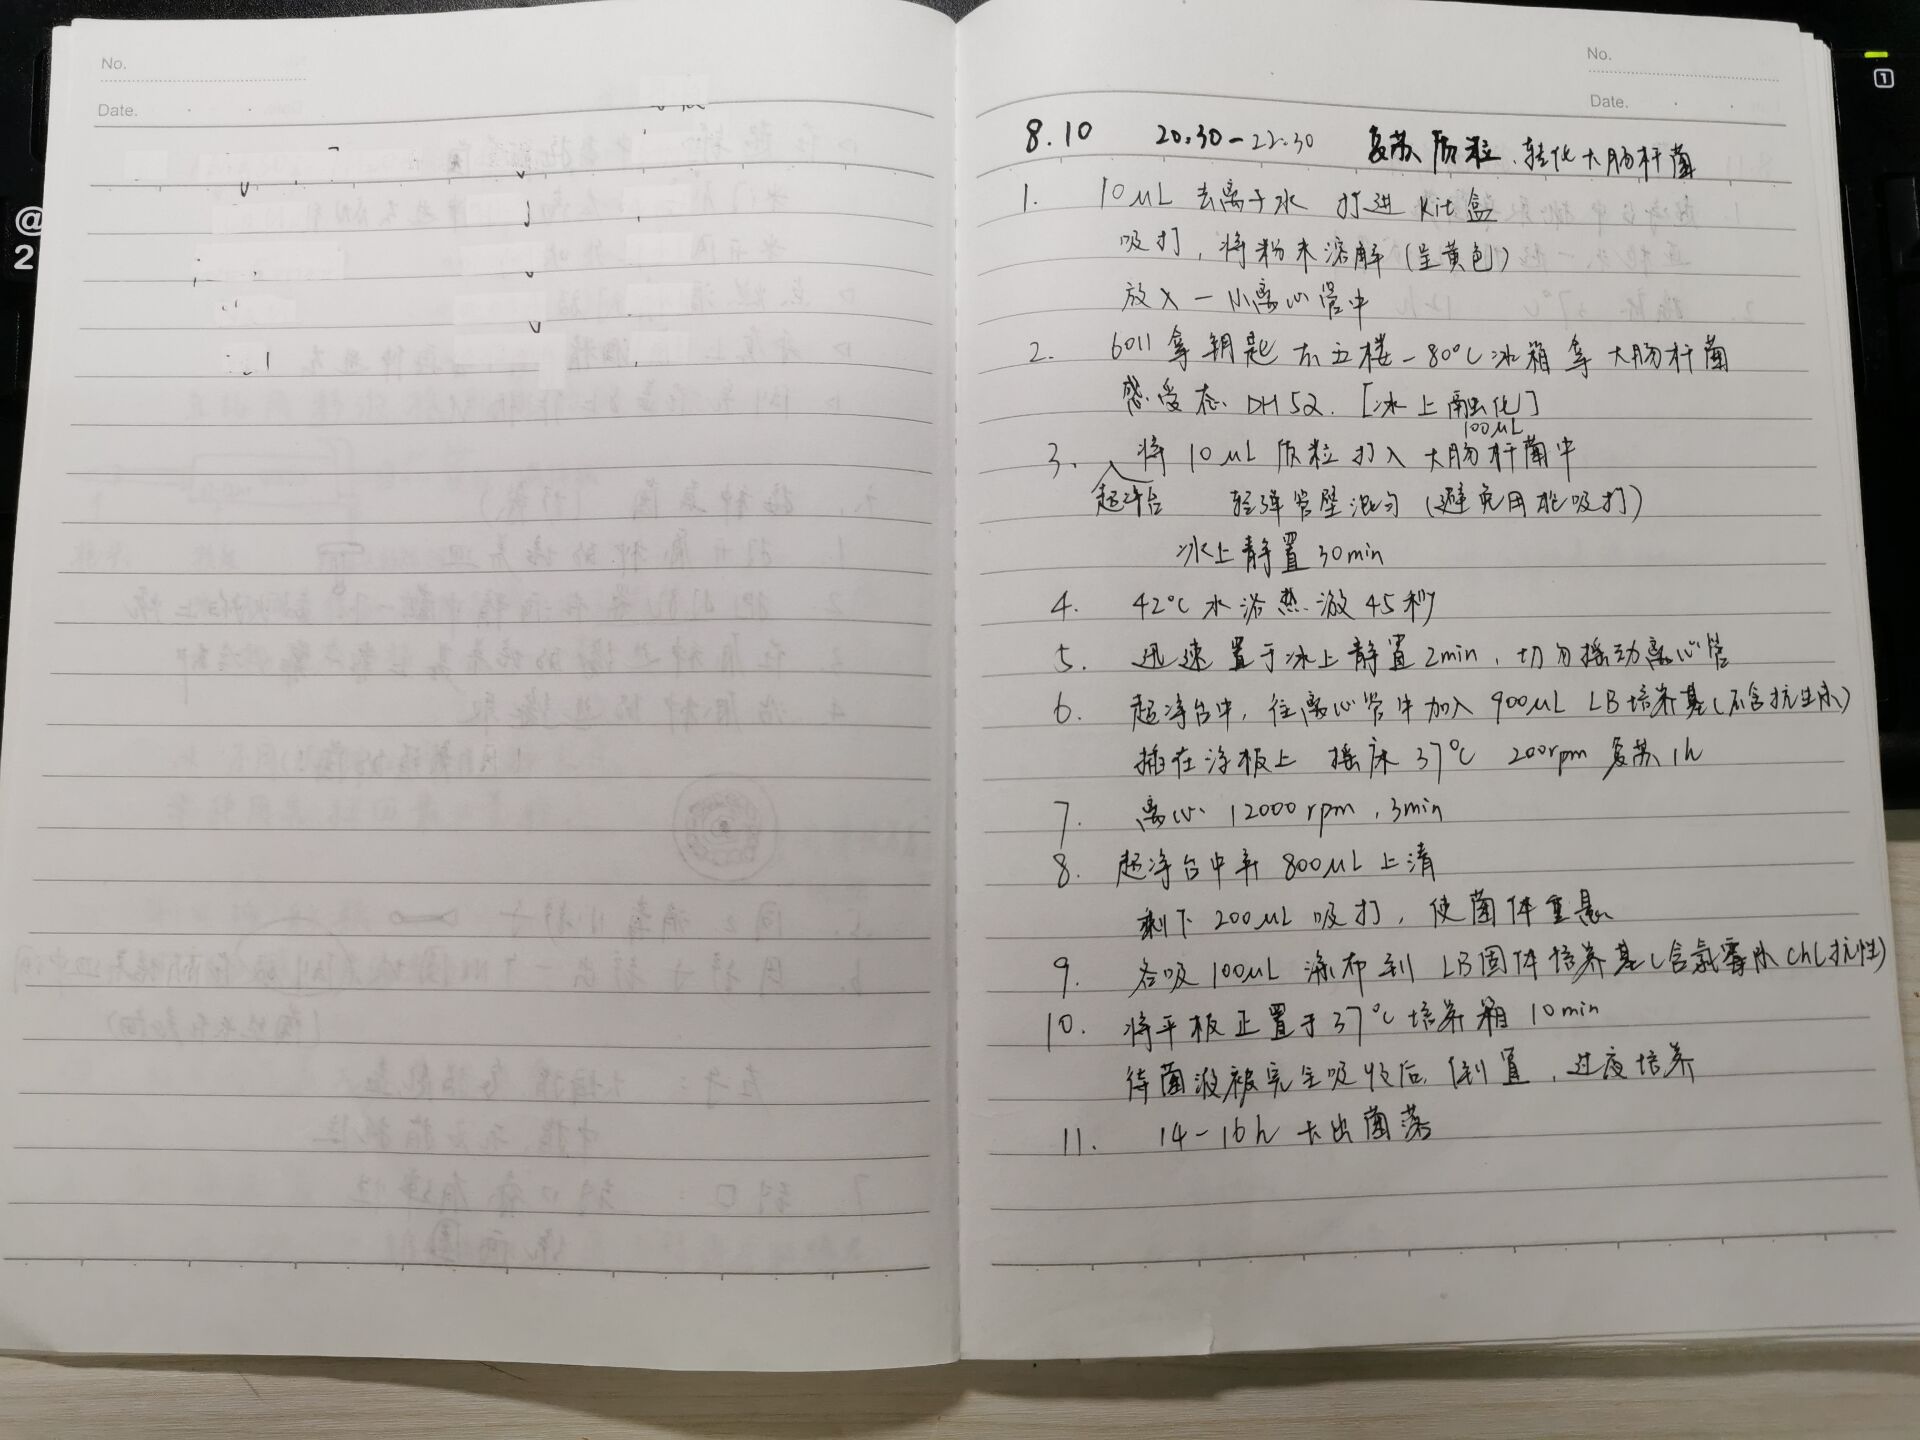 No.
Date.
No.
Date.
8.10 20:30-22:30 复苏质粒、转化大肠杆菌
1. 10μL 去离子水 打进 Kit盒
吸打，将粉末溶解(呈黄色)
放入一小离心管中
2. 6011拿钥匙 去五楼-80℃冰箱拿大肠杆菌
感受态 DH5α. [冰上融化]
100μL
3. 将10μL质粒打入大肠杆菌中
超净台 轻弹管壁混匀(避免用枪吸打)
冰上静置30min
4. 42℃水浴热激45秒
5. 迅速置于冰上静置2min，切勿摇动离心管
6. 超净台中，往离心管中加入900μL LB培养基(不含抗生素)
插在浮板上 摇床37℃ 200rpm 复苏1h
7. 离心 12000rpm，3min
8. 超净台中弃800μL上清
剩下200μL吸打，使菌体重悬
9. 各吸100μL 涂布到 LB固体培养基(含氯霉素Chl抗性)
10. 将平板正置于37℃培养箱10min
待菌液被完全吸收后，倒置，过夜培养
11. 14-16h 长出菌落
@
2
1